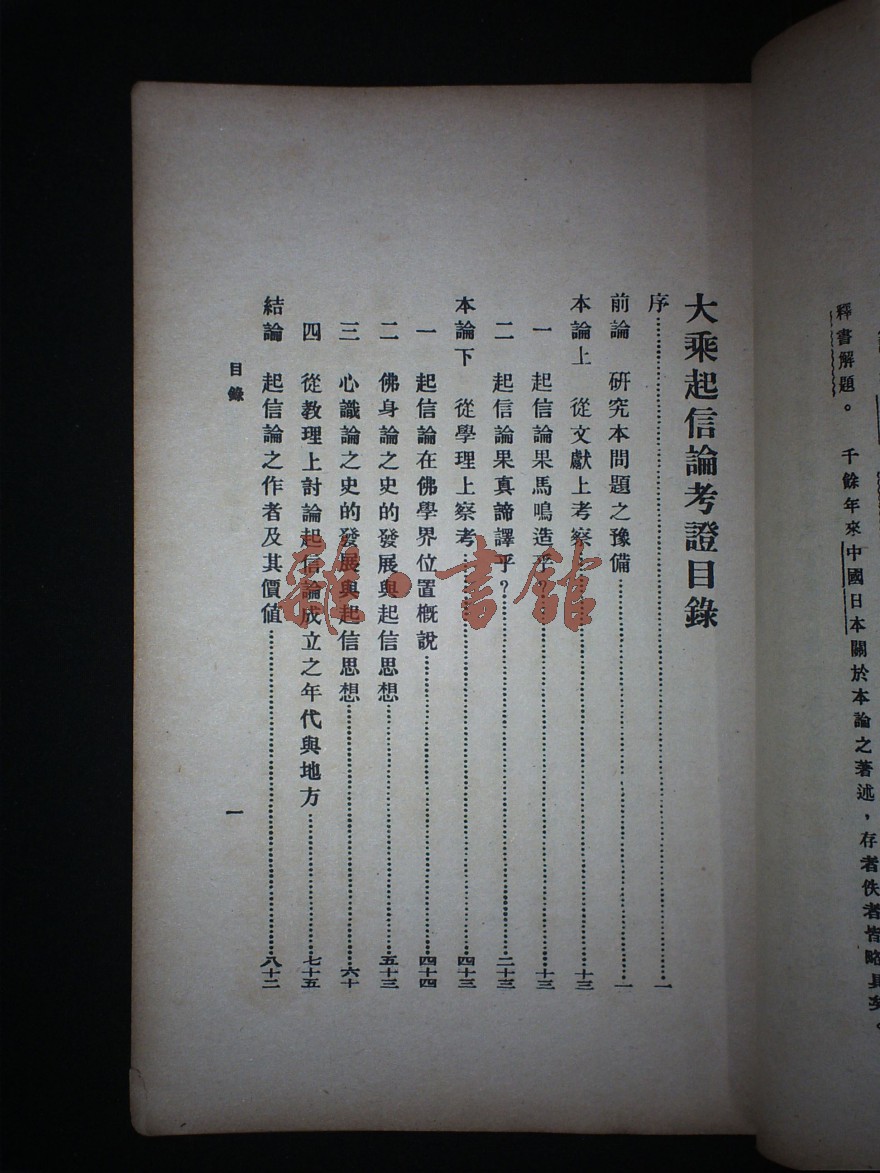 釋書解題。　千餘年來中國日本關於本論之著述，存者佚者皆略具矣。
大乘起信論考證目錄
序……一
前論　研究本問題之豫備……一
本論上　從文獻上考察……十三
一　起信論果馬鳴造乎？……十三
二　起信論果真諦譯乎？……二十三
本論下　從學理上察考……四十三
一　起信論在佛學界位置概說……四十四
二　佛身論之史的發展與起信思想……五十三
三　心識論之史的發展與起信思想……六十
四　從教理上討論起信論成立之年代與地方……七十五
結論　起信論之作者及其價值……八十二
目錄
一
雜·書館